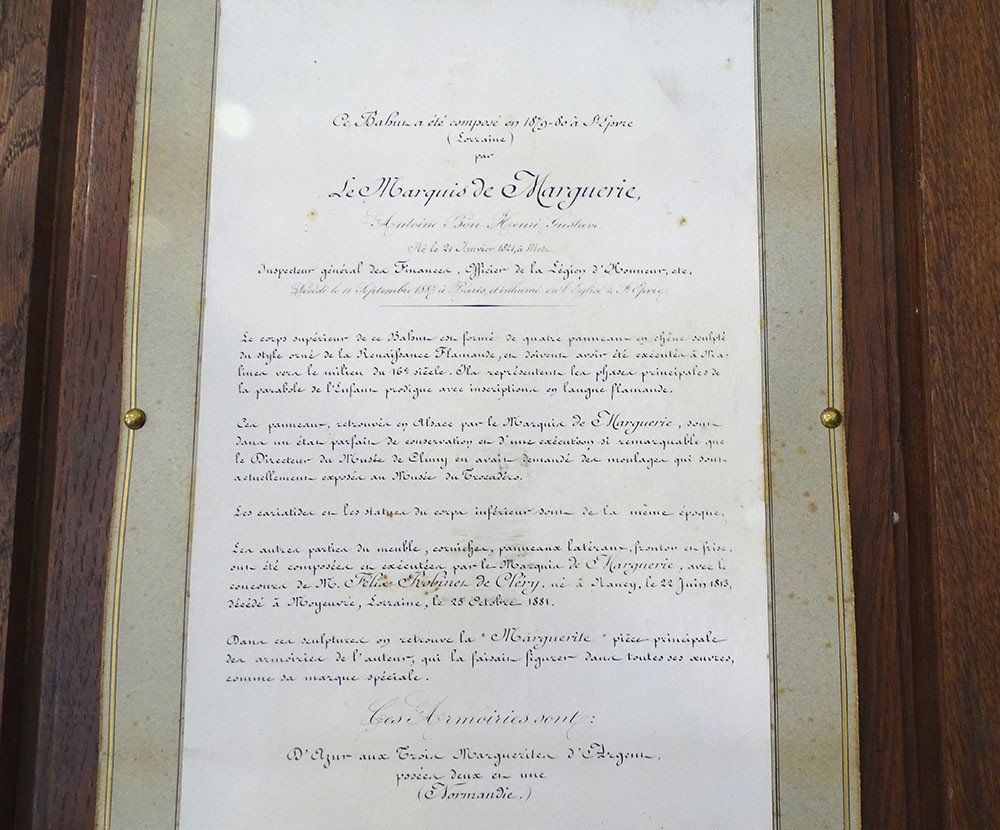 Ce Bahut a été composé en 1879-80 à St Epvre
(Lorraine)
par
Le Marquis de Marguerie,
Antoine Bon Henri Gustave
Né le 21 Janvier 1821, à Metz
Inspecteur général des Finances, Officier de la Légion d'Honneur, etc.
Décédé le 11 Septembre 1887 à Paris, et inhumé en l'Eglise de St Epvre.
Le corps supérieur de ce Bahut est formé de quatre panneaux en chêne sculpté
du style orné de la Renaissance Flamande, et doivent avoir été exécutés à Ma-
lines vers le milieu du 16e siècle. Ils représentent les phases principales de
la parabole de l'Enfant prodigue avec inscriptions en langue flamande.
Ces panneaux, retrouvés en Alsace par le Marquis de Marguerie, sont
dans un état parfait de conservation et d'une exécution si remarquable que
le Directeur du Musée de Cluny en avait demandé des moulages qui sont
actuellement exposés au Musée du Trocadéro.
Les cariatides et les statues du corps inférieur sont de la même époque.
Les autres parties du meuble, corniches, panneaux latéraux, fronton et frise,
ont été composées et exécutées par le Marquis de Marguerie, avec le
concours de M. Félix Robinet de Cléry, né à Nancy, le 22 Juin 1813,
décédé à Moyeuvre, Lorraine, le 25 Octobre 1881.
Dans ces sculptures on retrouve la "Marguerite" pièce principale
des armoiries de l'auteur, qui la faisait figurer dans toutes ses œuvres,
comme sa marque spéciale.
Ces Armoiries sont:
D'Azur aux Trois Marguerites d'Argent,
posées deux et une
(Normandie.)